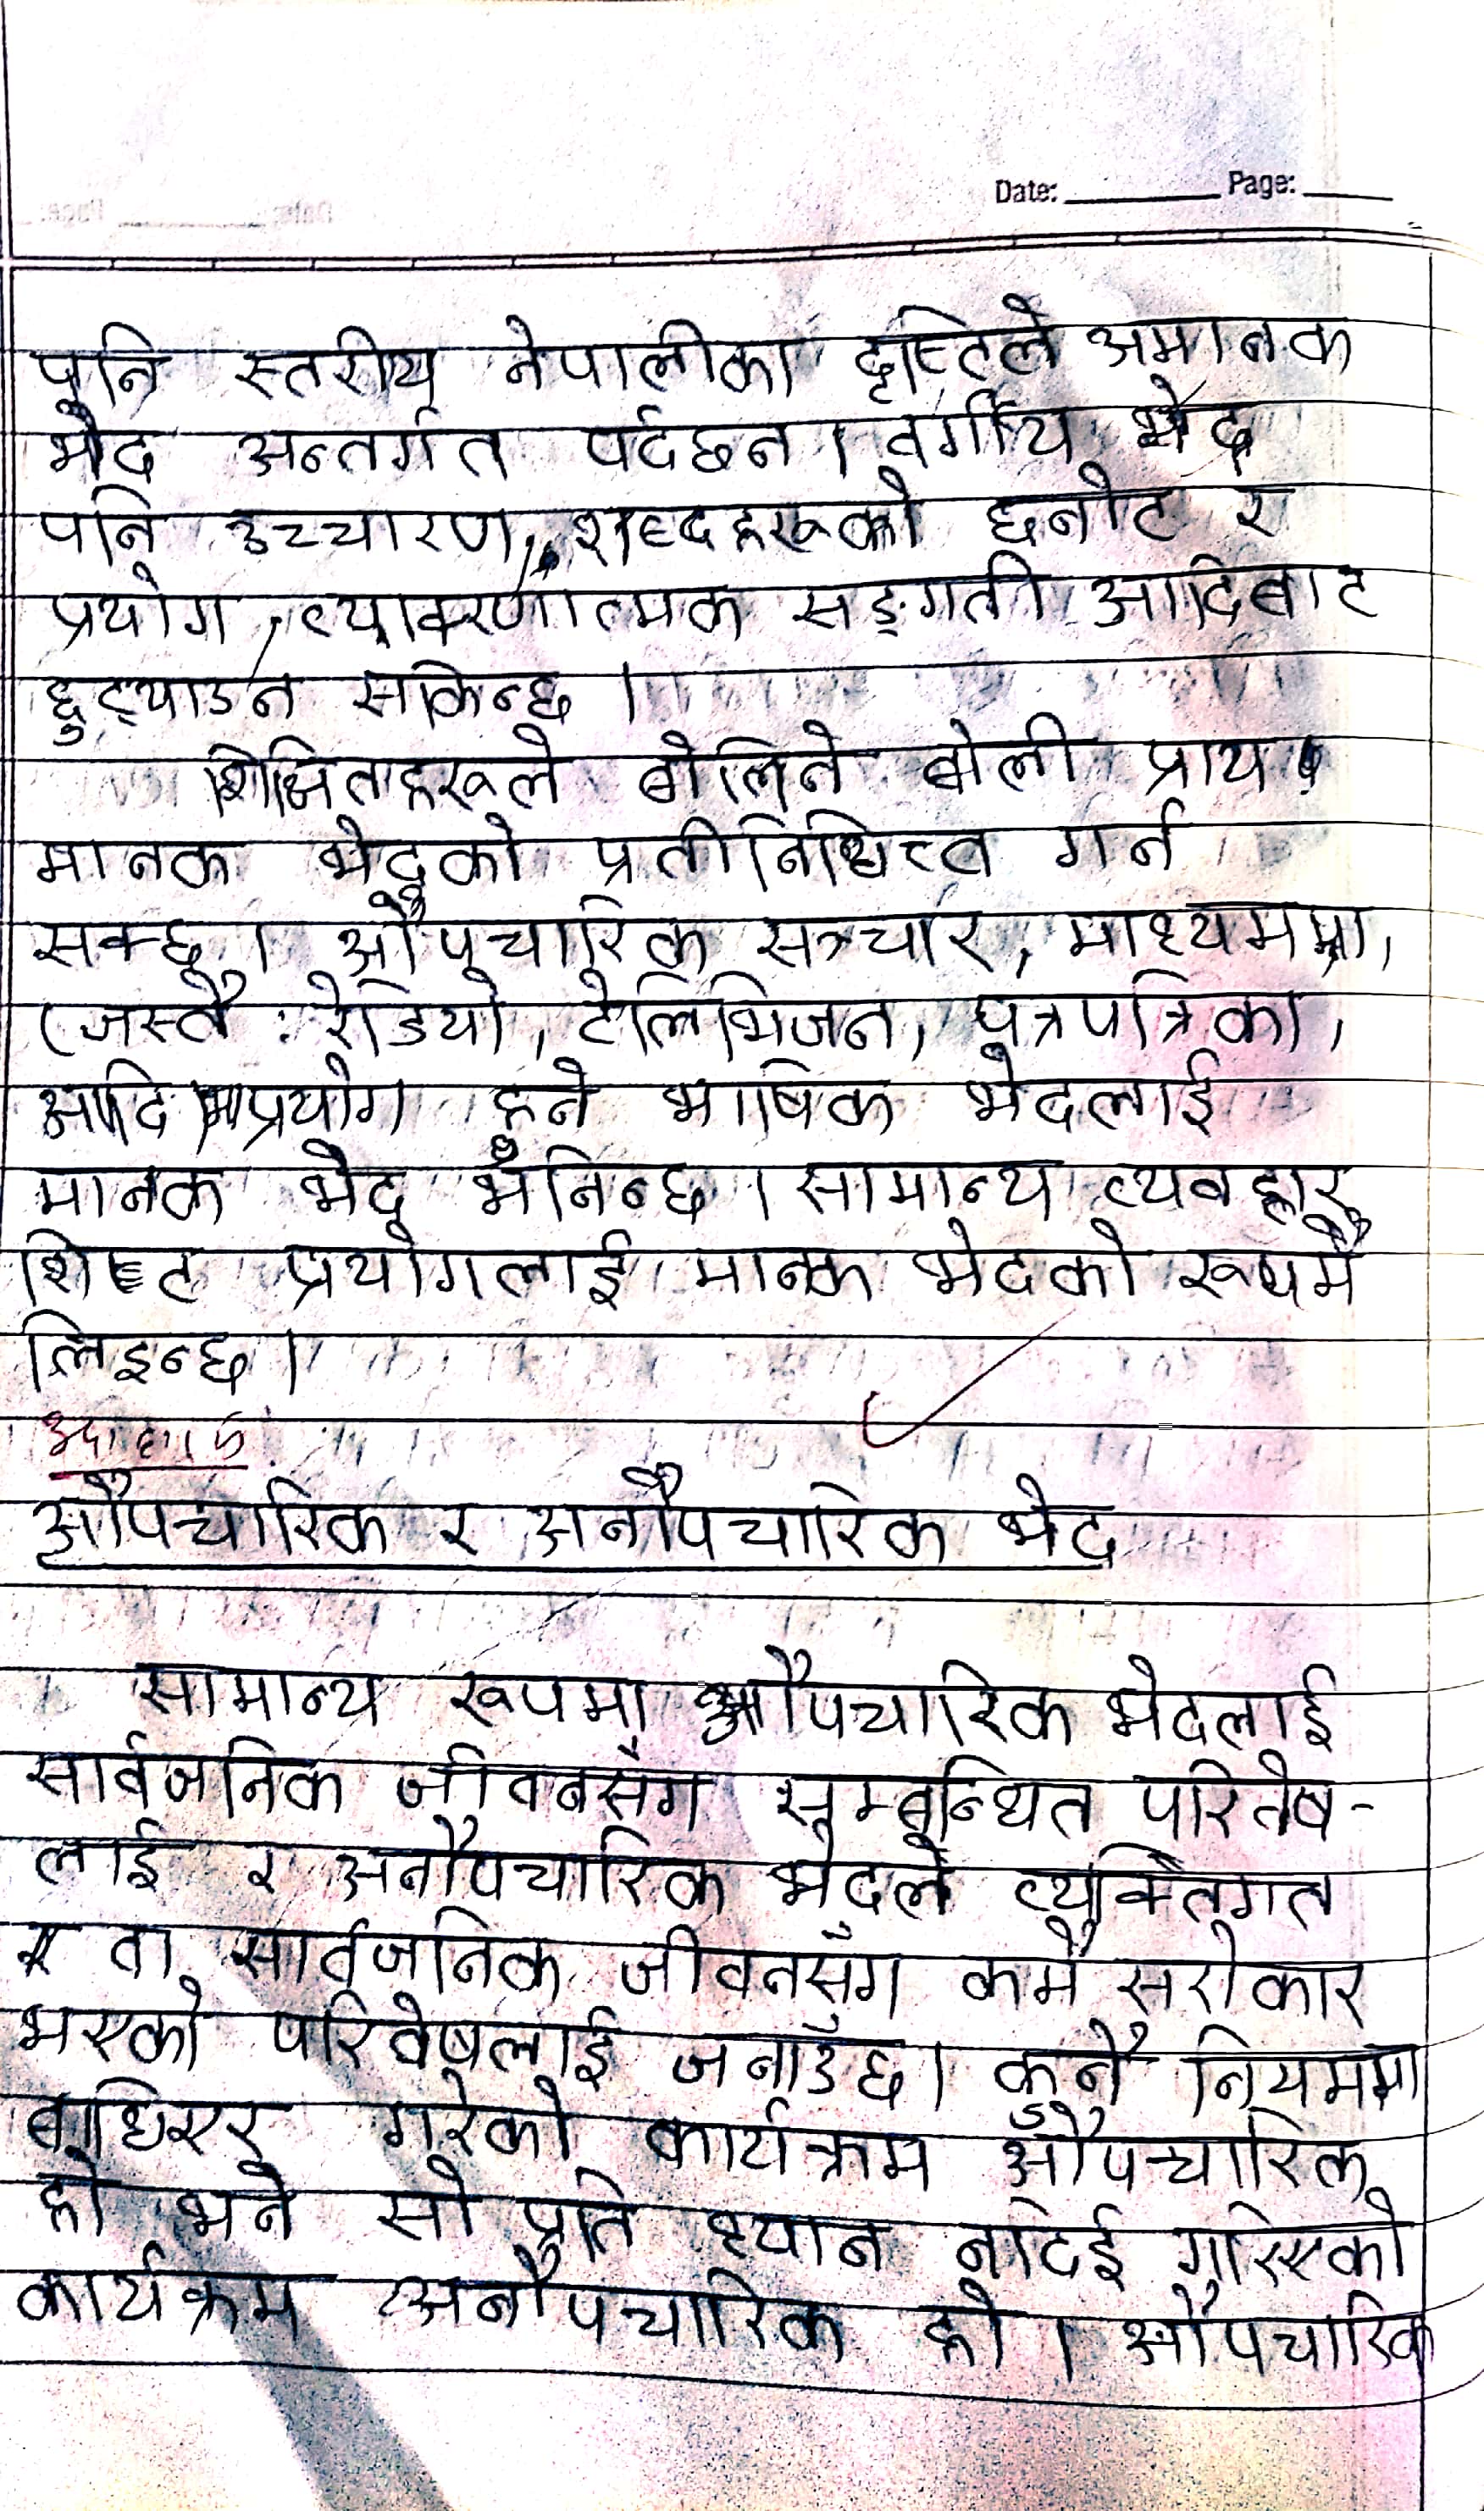 Date: Page:
पनि स्तरीय नेपालीका दृष्टिले अमानक
भेद अन्तर्गत पर्दछन । वर्गीय भेद
पनि उच्चारण, शब्दहरूको छनोट र
प्रयोग, व्याकरणात्मक सङ्गती आदिबाट
छुट्याउन सकिन्छ ।
शिक्षितहरूले बोलिने बोली प्राय
मानक भेदको प्रतीनिधित्व गर्न
सक्छ । औपचारिक सञ्चार, माध्यममा,
(जस्तै : रेडियो, टेलिभिजन, पत्रपत्रिका,
आदि) मा प्रयोग हुने भाषिक भेदलाई
मानक भेद भनिन्छ । सामान्य व्यवहार
शिष्ट प्रयोगलाई मानक भेदको रूपमै
लिइन्छ ।
औपचारिक र अनौपचारिक भेद
सामान्य रूपमा औपचारिक भेदलाई
सार्वजनिक जीवनसँग सम्बन्धित परिवेष-
लाई र अनौपचारिक भेदले व्यक्तिगत
र वा सार्वजनिक जीवनसँग कमै सरोकार
भएको परिवेषलाई जनाउँछ । कुनै नियममा
बाधिएर गरेको कार्यक्रम औपचारिक
हो भने सो प्रति ध्यान नदिई गरिएको
कार्यक्रम अनौपचारिक हो । औपचारिक